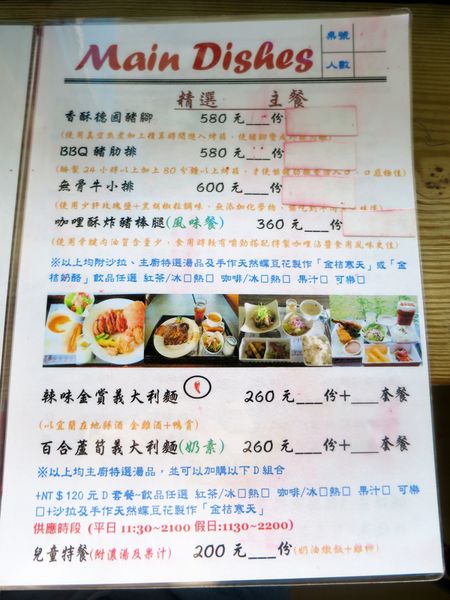 Main Dishes
桌號
人數
精選 主餐
香酥德國豬腳 580 元___份
(使用真空熟煮加上精算時間進入烤箱,使豬腳雙
BBQ 豬肋排 580 元___份
(醃製 24 小時以上加上 80 分鐘以上烤箱,
無骨牛小排 600 元___份
(使用少許玫瑰鹽+黑胡椒粒調味、無添加化學物、
咖哩酥炸豬棒腿(風味餐) 360 元___份
(使用骨腱肉油質含量少、食用時較有嚼勁搭配特製咖哩沾醬食用風味更佳)
※以上均附沙拉、主廚特選湯品及手作天然蝶豆花製作「金桔寒天」或「金
桔奶酪」飲品任選 紅茶/冰□熱□ 咖啡/冰□熱□ 果汁□ 可樂□
辣味金賞義大利麵 260 元___份+___套餐
(以宜蘭在地酥酒 金雞酒+鴨賞)
百合蘆荀義大利麵(奶素) 260 元___份+___套餐
※以上均主廚特選湯品,並可以加購以下 D 組合
+NT$120 元 D 套餐~飲品任選 紅茶/冰□熱□ 咖啡/冰□熱□ 果汁□ 可樂
□+沙拉及手作天然蝶豆花製作「金桔寒天」
供應時段 (平日 11:30~2100 假日:1130~2200)
兒童特餐(附濃湯及果汁) 200 元___份(奶油燉飯+雞柳)